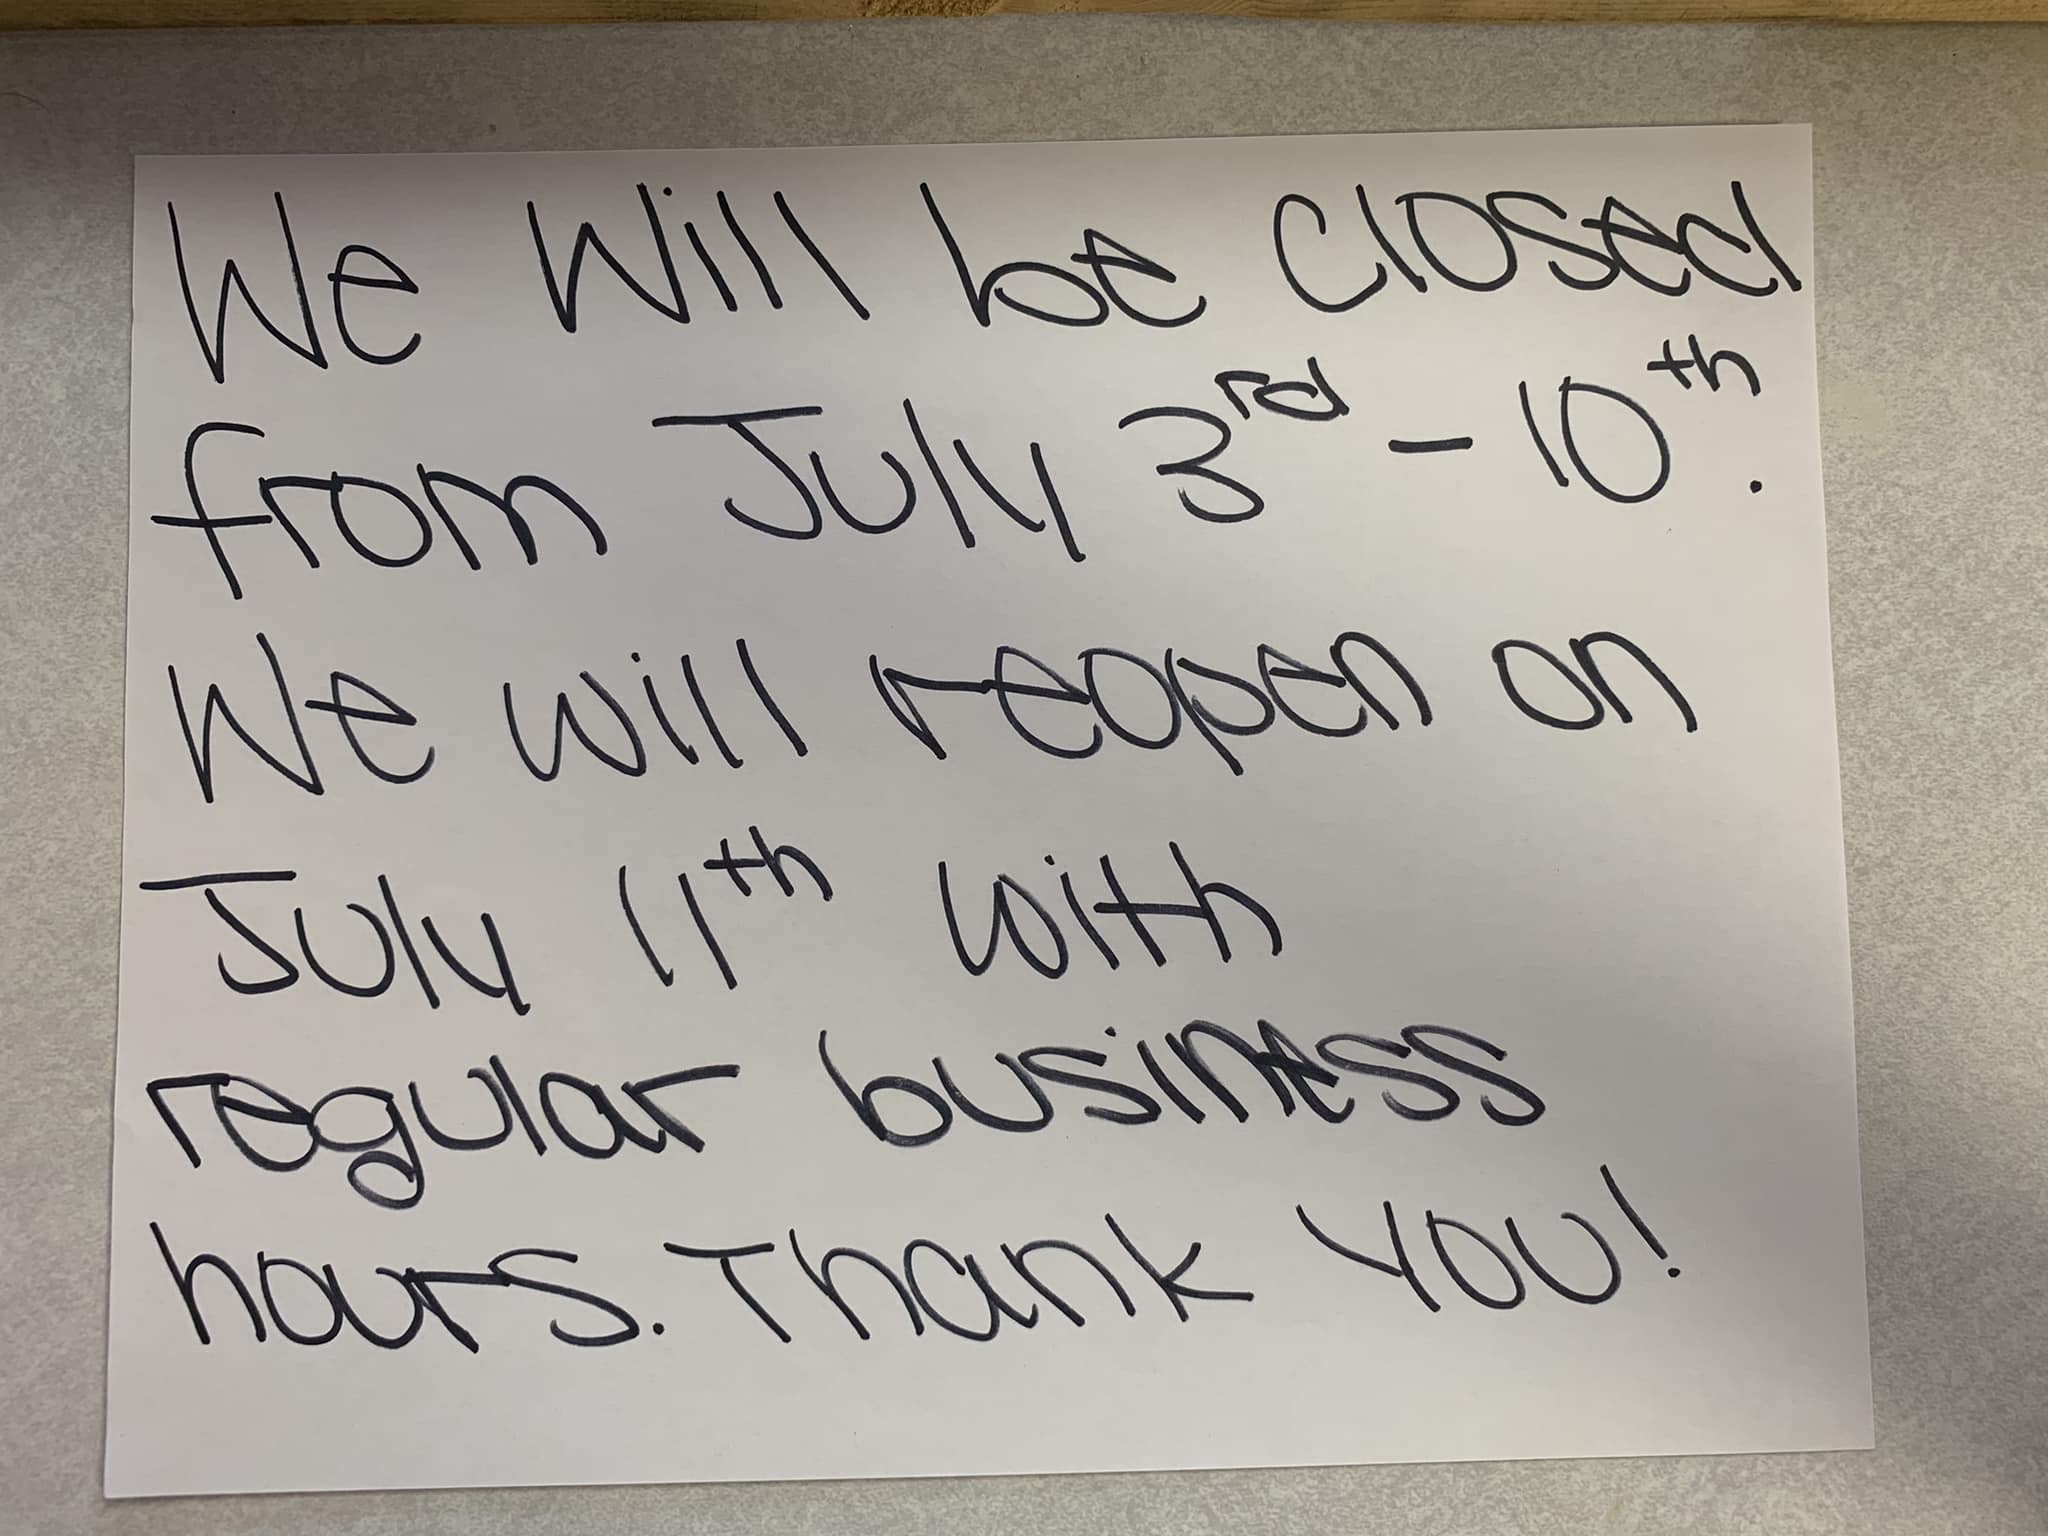 We Will be closed
from July 3rd - 10th.
We will reopen on
July 11th with
regular business
hours. Thank You!